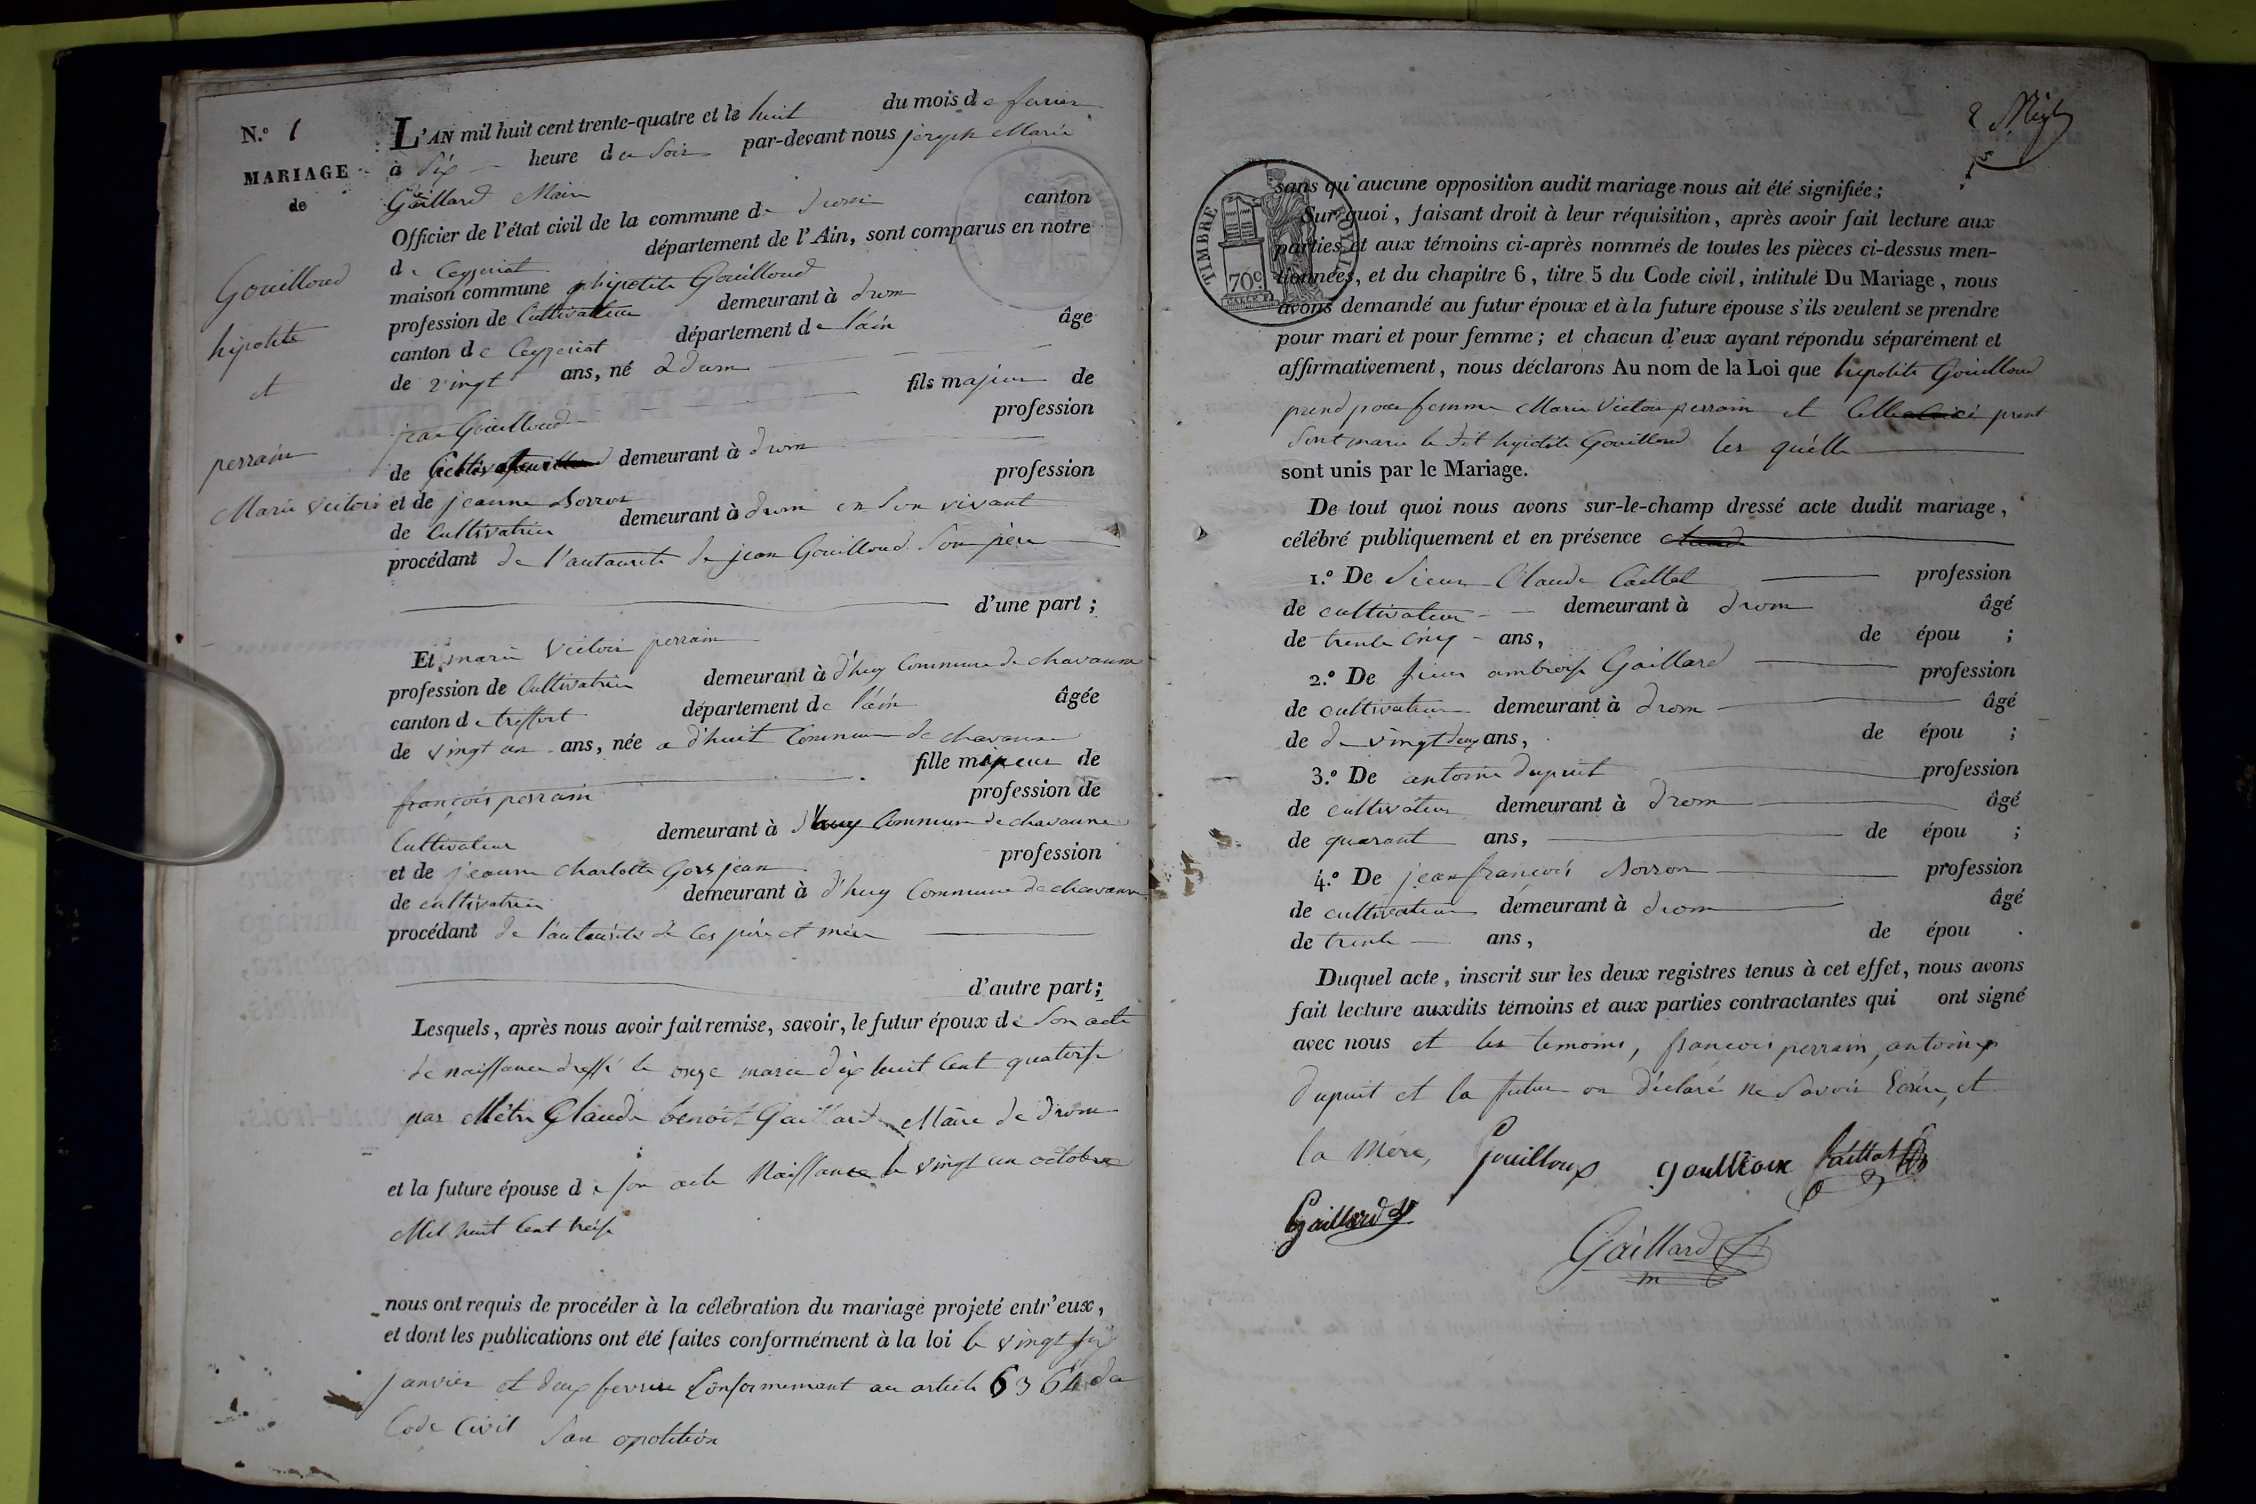 N.º 1
MARIAGE
de
Gouilloud
hipolite
et
perrain
Marie Victoire
L'AN mil huit cent trente-quatre et le huit du mois de fevrier
à six heure du soir par-devant nous joseph Marie
Gaillard Maire
Officier de l'état civil de la commune de drom canton
de Ceyzeriat département de l'Ain, sont comparus en notre
maison commune hipolite Gouilloud
profession de Cultivateur demeurant à drom
canton de Ceyzeriat département de l'ain âge
de vingt ans, né a drom
fils majeur de
jean Gouilloud profession
de demeurant à drom
et de jeanne Sorron profession
de Cultivatrice demeurant à drom en son vivant
procédant de l'autaurité de jean Gouilloud Son père
d'une part ;
Et marie Victoire perrain
profession de Cultivatrice demeurant à d'huy Commune de chavanne
canton de treffort département de l'ain âgée
de vingt un ans, née a d'huit Commune de chavanne
fille majeur de
françois perrain profession de
Cultivateur demeurant à d'huy Commune de chavanne
et de jeanne charlotte Gorsjean profession
de cultivatrice demeurant à d'huy Commune de chavanne
procédant de l'autaurité de ces père et mère
d'autre part ;
Lesquels, après nous avoir fait remise, savoir, le futur époux de Son acte
de naissance dressé le onze mars dix huit Cent quatorse
par Claude benoit Gaillard Maire de drom
et la future épouse de son acte Naissance le vingt un octobre
Mil huit Cent treise
nous ont requis de procéder à la célébration du mariage projeté entr'eux,
et dont les publications ont été faites conformément à la loi le vingt six
janvier et deux fevrier Conformemant au article 63 64 du
Code Civil San opotition
TIMBRE ROYAL
70c
sans qu'aucune opposition audit mariage nous ait été signifiée ;
Sur quoi, faisant droit à leur réquisition, après avoir fait lecture aux
parties et aux témoins ci-après nommés de toutes les pièces ci-dessus men-
tionnées, et du chapitre 6, titre 5 du Code civil, intitulé Du Mariage, nous
avons demandé au futur époux et à la future épouse s'ils veulent se prendre
pour mari et pour femme ; et chacun d'eux ayant répondu séparément et
affirmativement, nous déclarons Au nom de la Loi que hipolite Gouilloud
prend pour femme Marie Victoire perrain et prent
marie le dit hipolite Gouilloud les quelle
sont unis par le Mariage.
De tout quoi nous avons sur-le-champ dressé acte dudit mariage,
célébré publiquement et en présence
1.º De Sieur Claude Caillat profession
de cultivateur demeurant à drom âgé
de trente cinq ans, de épou ;
2.º De Sieur ambroise Gaillard profession
de cultivateur demeurant à drom âgé
de de vingt deux ans, de épou ;
3.º De antoine dupuit profession
de cultivateur demeurant à drom âgé
de quarant ans, de épou ;
4.º De jean françois Sorron profession
de cultivateur demeurant à drom âgé
de trente ans, de épou .
Duquel acte, inscrit sur les deux registres tenus à cet effet, nous avons
fait lecture auxdits témoins et aux parties contractantes qui ont signé
avec nous et les temoins, francois perrain, antoine
dupuit et la futur on déclaré ne Savoir Ecrire, et
la Mére, Gouilloux goullioux Caillat
Gaillard
Gaillard